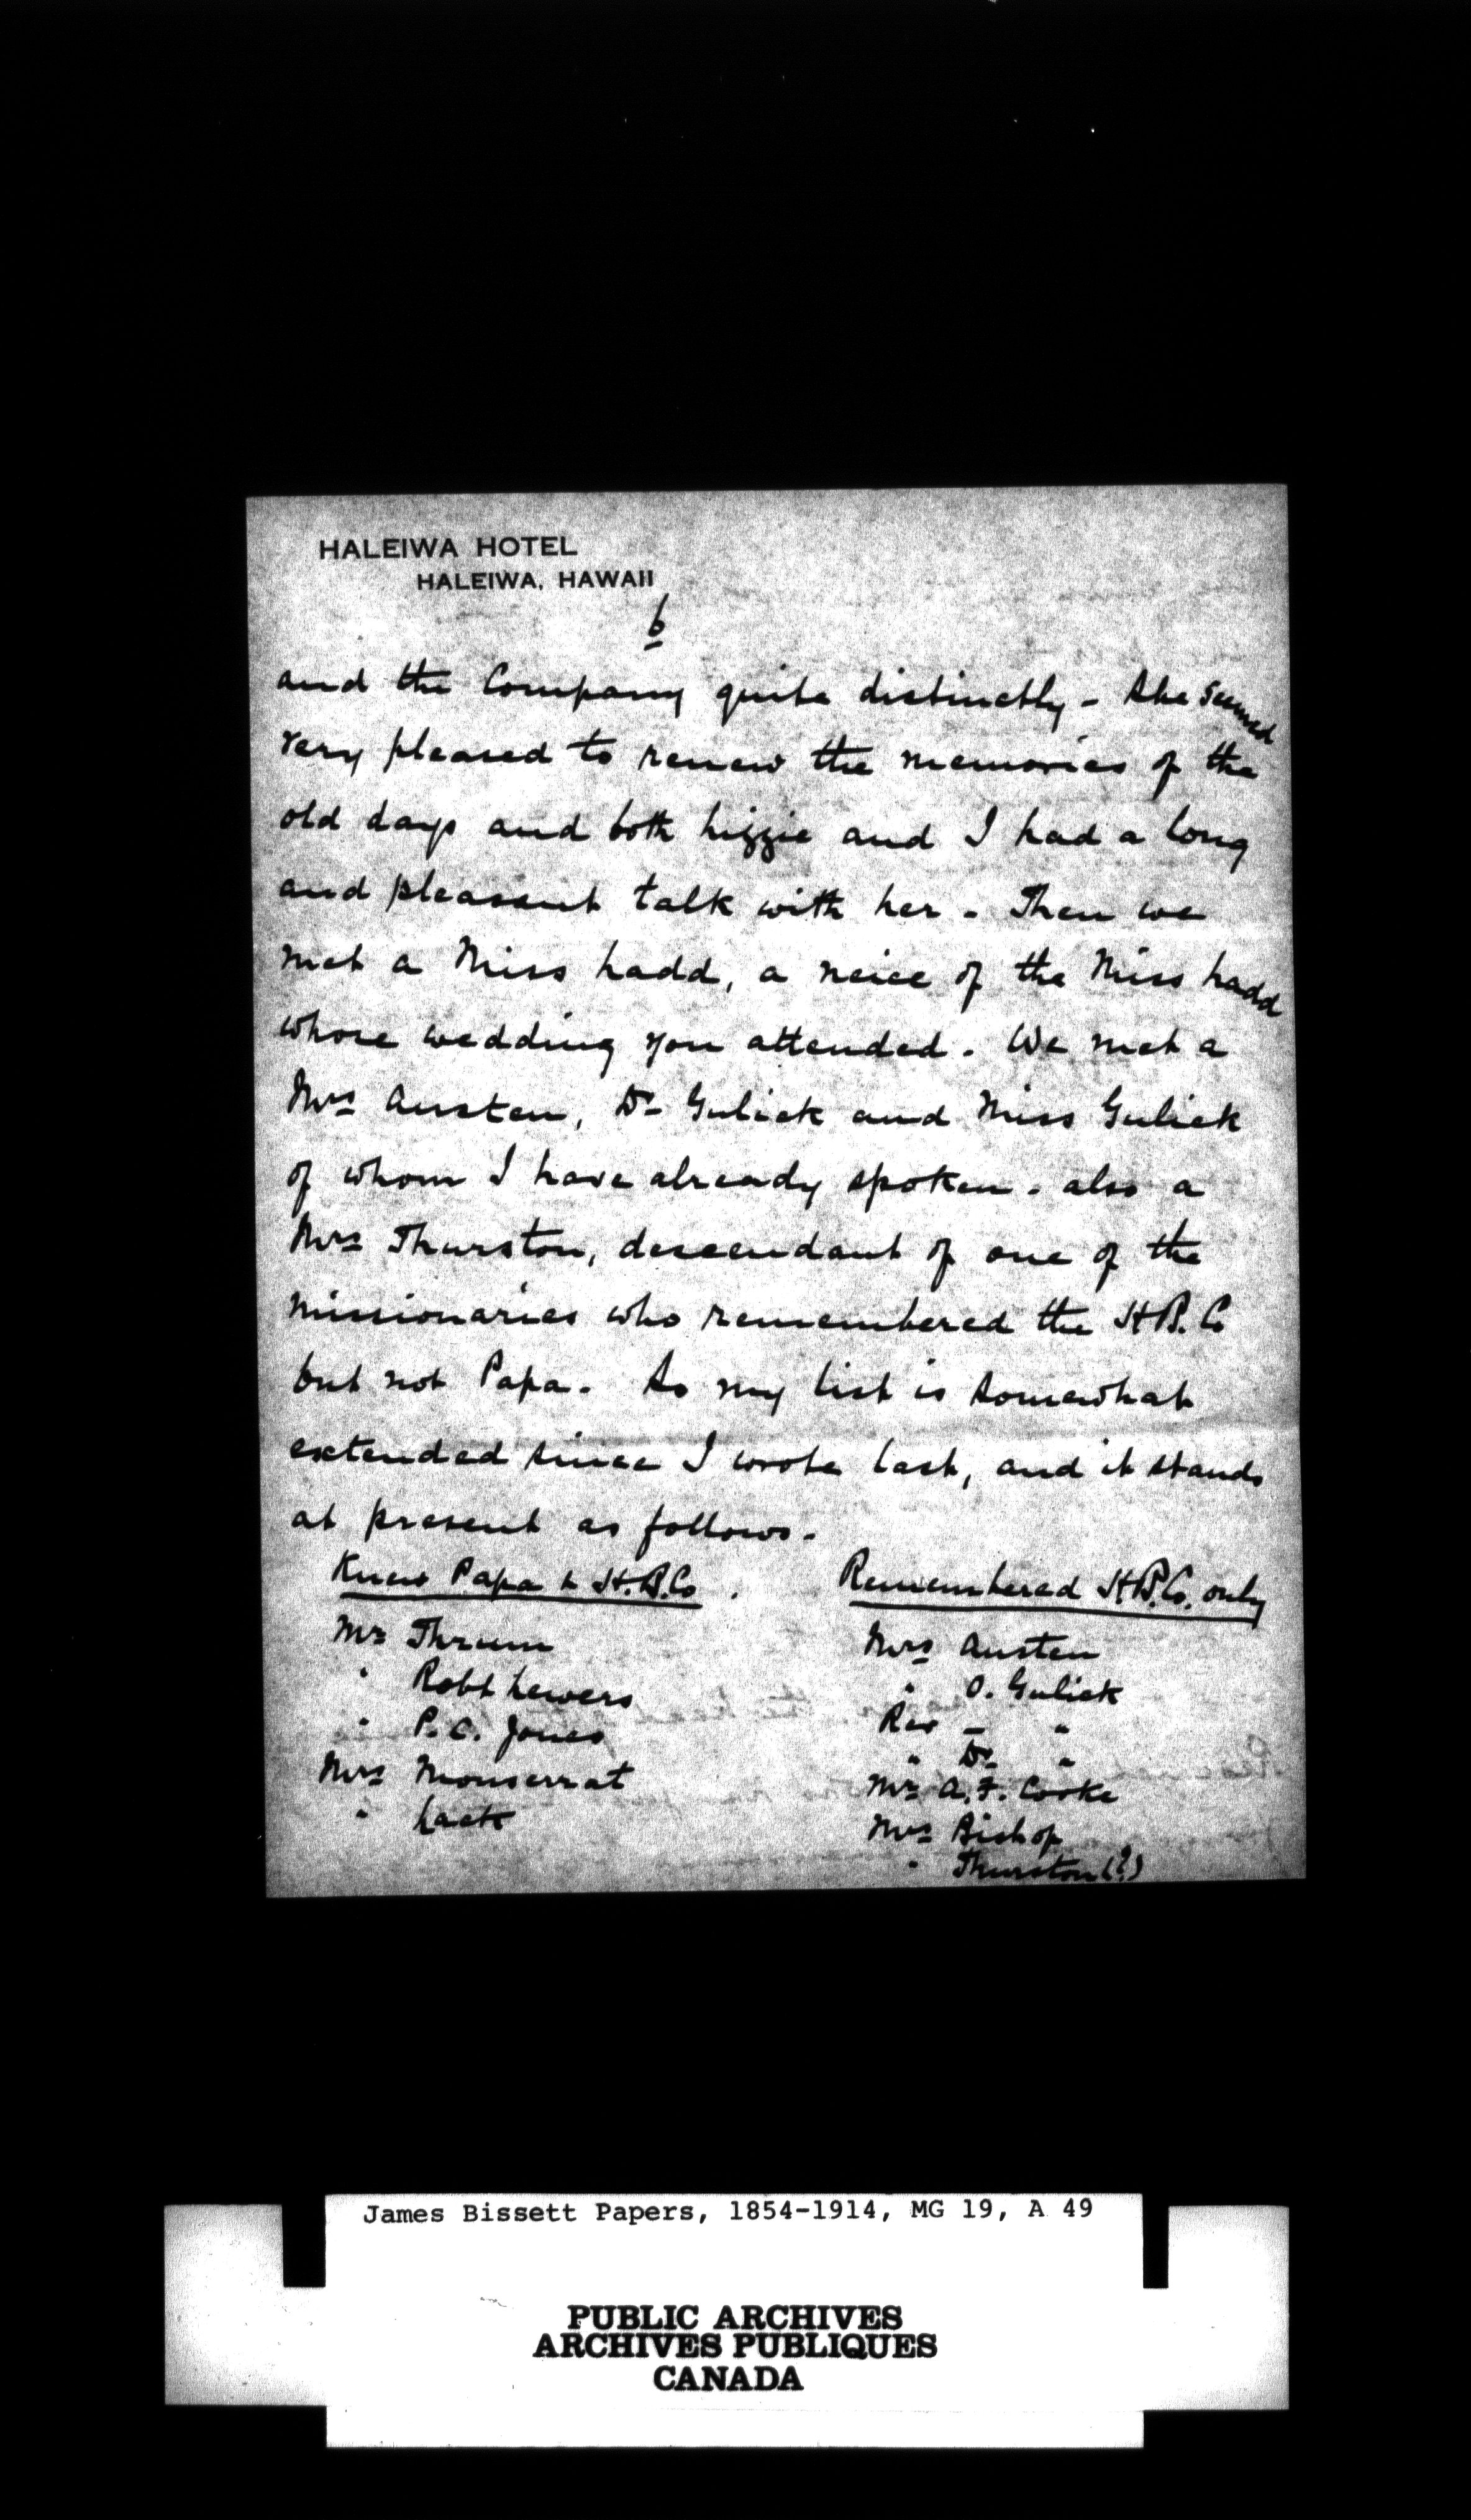 HALEIWA HOTEL
HALEIWA, HAWAII
6
and the Company quite distinctly - She seemed
very pleased to renew the memories of the
old days and both Lizzie and I had a long
and pleasant talk with her. Then we
met a Miss Ladd, a neice of the Miss Ladd
whose wedding you attended. We met a
Mrs Austen, Dr Gulick and Miss Gulick
of whom I have already spoken. also a
Mrs Thurston, descendant of one of the
missionaries who remembered the H.B.Co
but not Papa. So my list is somewhat
extended since I wrote last, and it stands
at present as follows.
Knew Papa & H.B.Co.
Mr Thrum
" Robt Lewers
" P.C. Jones
Mrs Monserrat
" Lack
Remembered H.B.Co. only
Mrs Austen
" O. Gulick
Rev - "
" Dr "
Mr A.F. Cooke
Mrs Bishop
" Thurston (?)
James Bissett Papers, 1854-1914, MG 19, A 49
PUBLIC ARCHIVES
ARCHIVES PUBLIQUES
CANADA